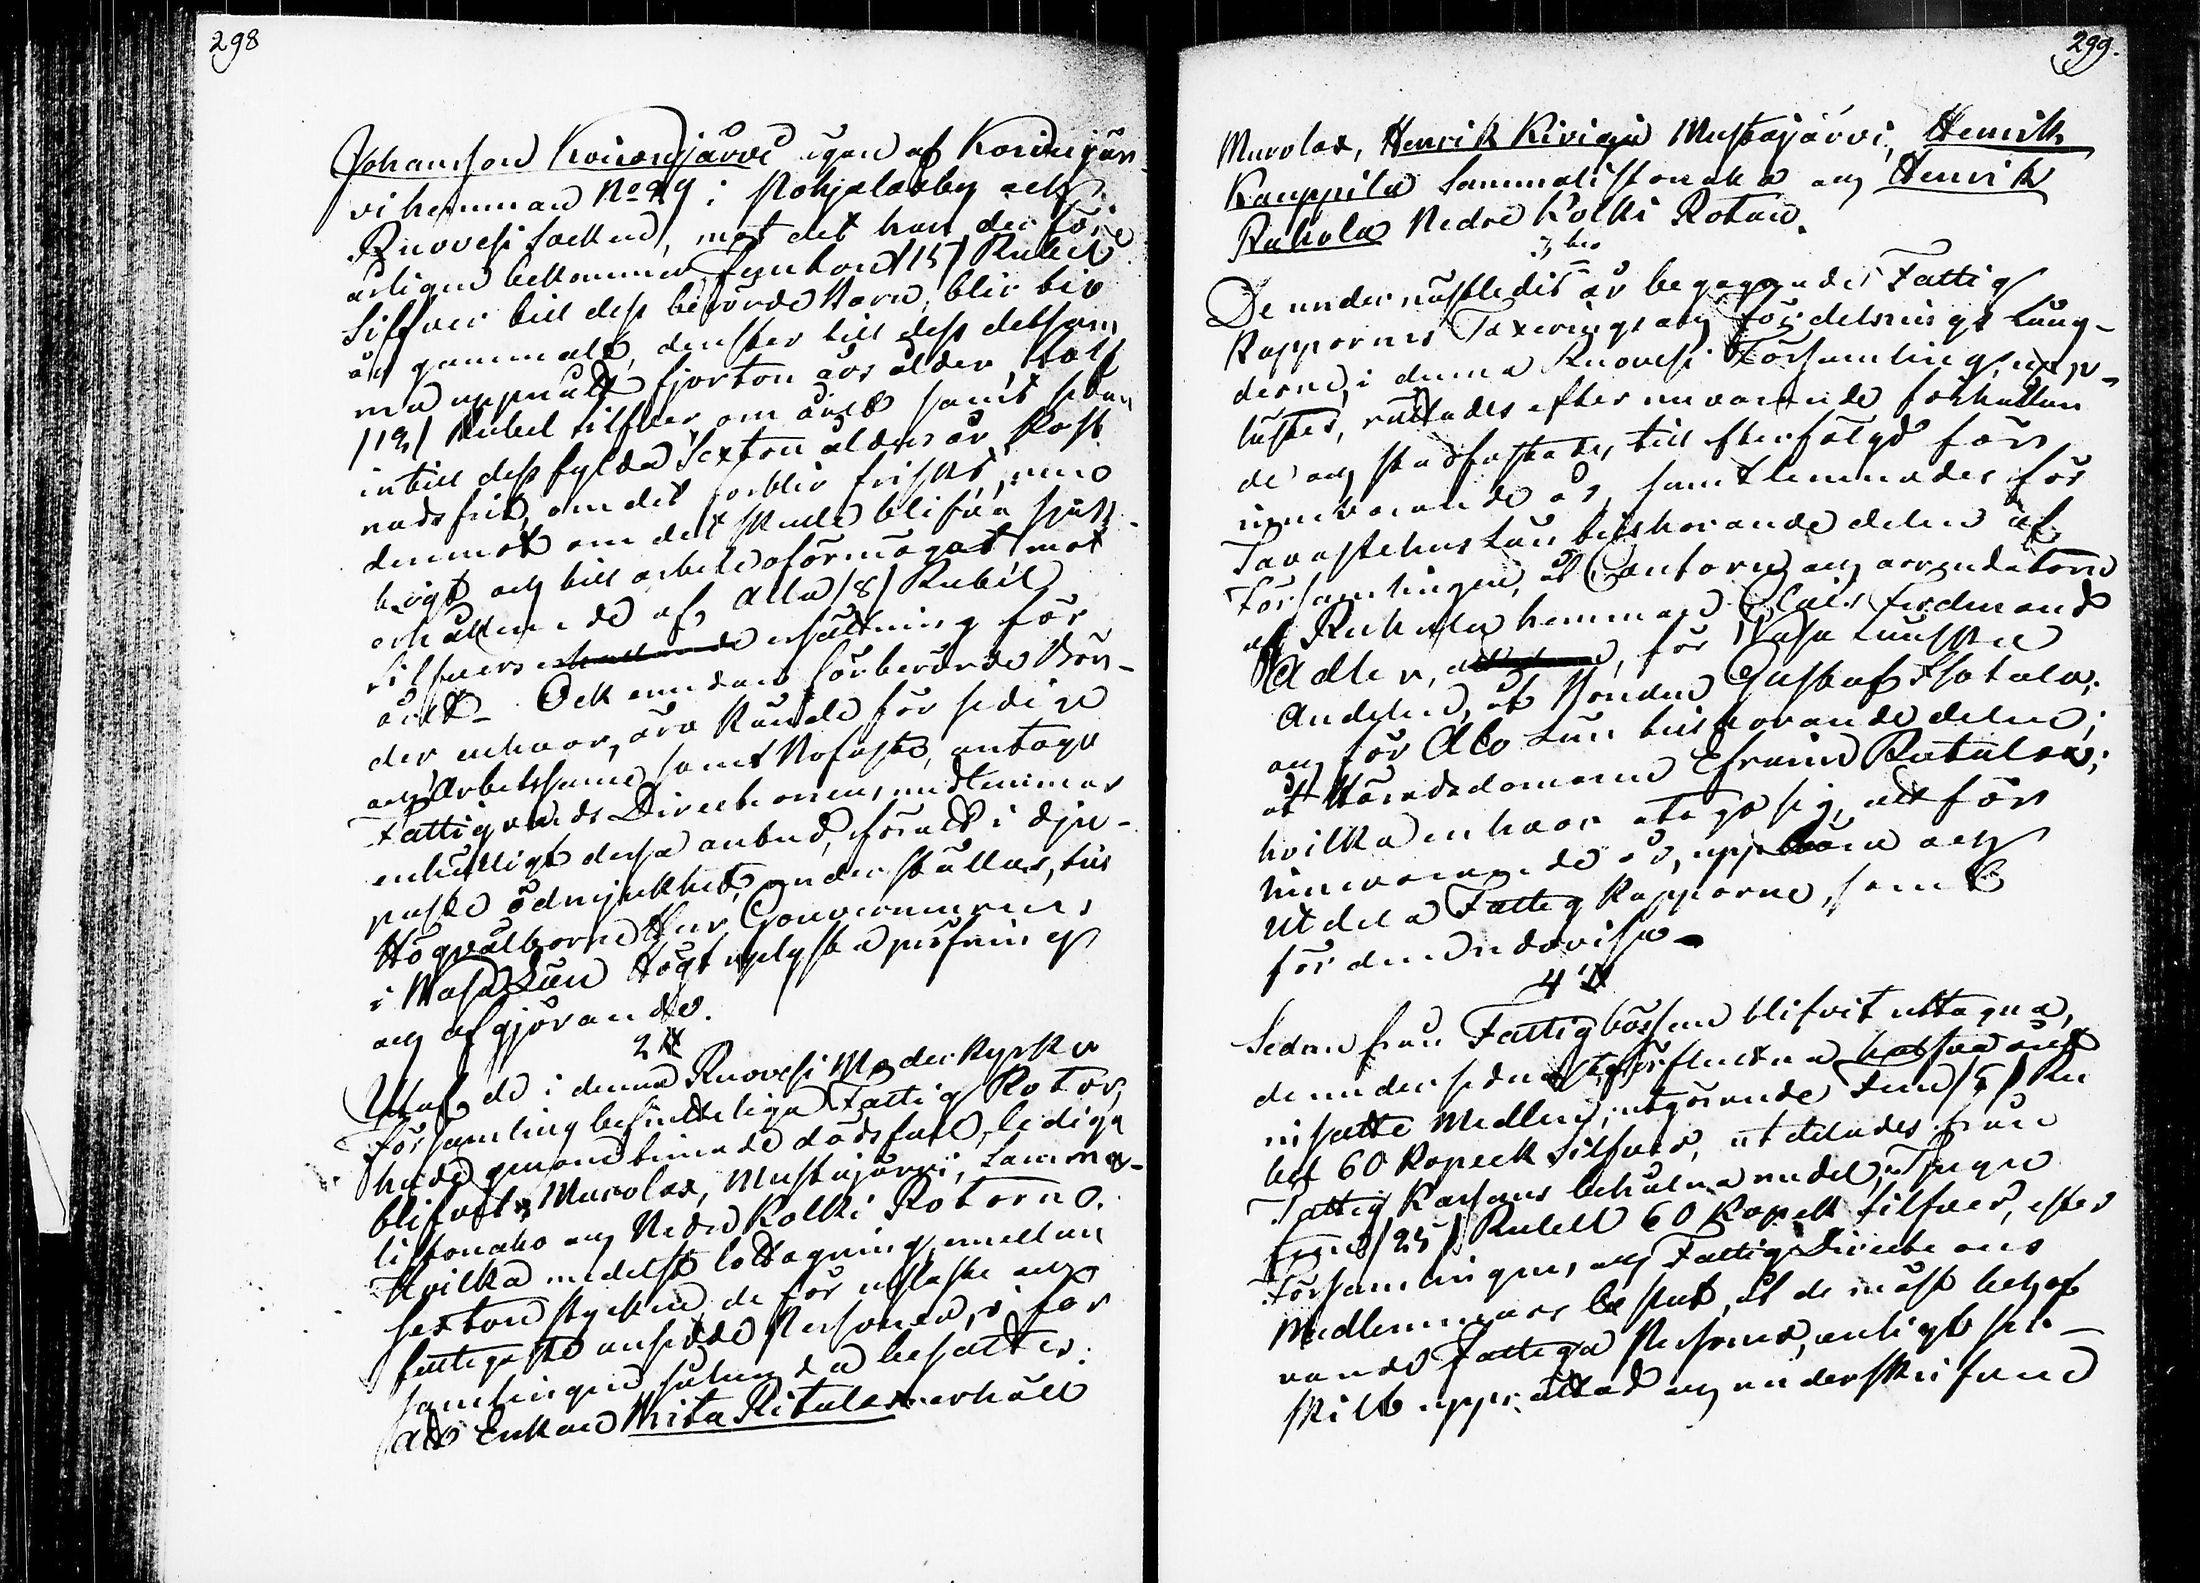 298
Johansson Koivusjärvi egare af Koivusjär-
vi hemman No 29 i Pohjalaxby och
Ruovesi Socken, mot det han derför
årligen bekommer femton /15/ Rubel
Silfver till dess berörde Barn blir tio
år gammalt, derefter till dess detsam
ma uppnått fjorton års ålder, tolf
/12/ Rubel silfver om året samt sedan
intill dess fylda Sexton ålders år, kost
nadsfritt, om det förblir friskt, men
deremot om det skulle blifva sjuk-
ligt och till arbete oförmöget mot
erhållande af Åtta /8/ Rubel
Silfvers ersättning för
året. Och emedan förberörde Bön-
der enhvar, äro kände för sedige
och Arbetssamme samt Bofaste, antogo
Fattigvårds Directionens medlemmar
enhälligt dessa anbud, förallt i dju-
paste ödmjukhet, underställes, till
Högvälborne Herr Gouverneurens
i Wasa Län Högtupplysta pröfning
och afgjörande.
2
Utaf de i denna Ruovesi Moderkyrko
församling befinteliga Fattig Rotor,
hade genom timade dödsfall, lediga
blifvit, Murolax, Mustajärvi, Samma-
listonaho och Nedre Kolki Rotorne.
Hvilka medelst lottagning emellan
sexton stycken de för uslaste och
fattigaste ansedde Personer, i för
samlingen sålunda besattes:
att Enkan Mria Ritalax erhöll
299.
Murolax, Henrik Kiviaja Mustajärvi, Henrik
Kauppila Sammalistonaho och Henrik
Ruhala Nedre Kolki Rotan.
3
De undernästledit år begagnades Fattig
Kappornes Taxerings och Fördelnings Läng-
derne, i denna Ruovesi Församling, upp-
lästes, rättades efter nuvarande förhållan
de och stadfästades, till efterföljd för
nuvarande år, samt lemnades för
Tavastehus Län tillhörande delen af
Församlingen, åt Cantorn och arrendatorn
af Ruhala hemman Claës Ferdinand
Adler, för Wasa Länske
Andelen, åt Bonden Gustaf Isotalo;
och för Åbo Län tillhörande delen;
åt Häradsdomaren Efraim Ritalax;
hvilka enhvar åtogo sig, att för
nuvarande år, uppbära och
utdela Fattig Kapporne, samt
för dem redovisa.
4
Sedan från Fattigbössan blifvit uttagna,
de under sednast förflutna halfva året
insatte Medlen, utgörande Fem /5/ Ru
bel 60 Kopeck Silfver, utdelades från
Fattig Kassans behållna medel, Tjugu
fem /25/ Rubel 60 Kopek silfver, efter
Församlingens och Fattig Directions
Medlemmars beslut, åt de mäst behof
vande Fattiga Personer, enligt sär-
skilt upprättad och underskrifven